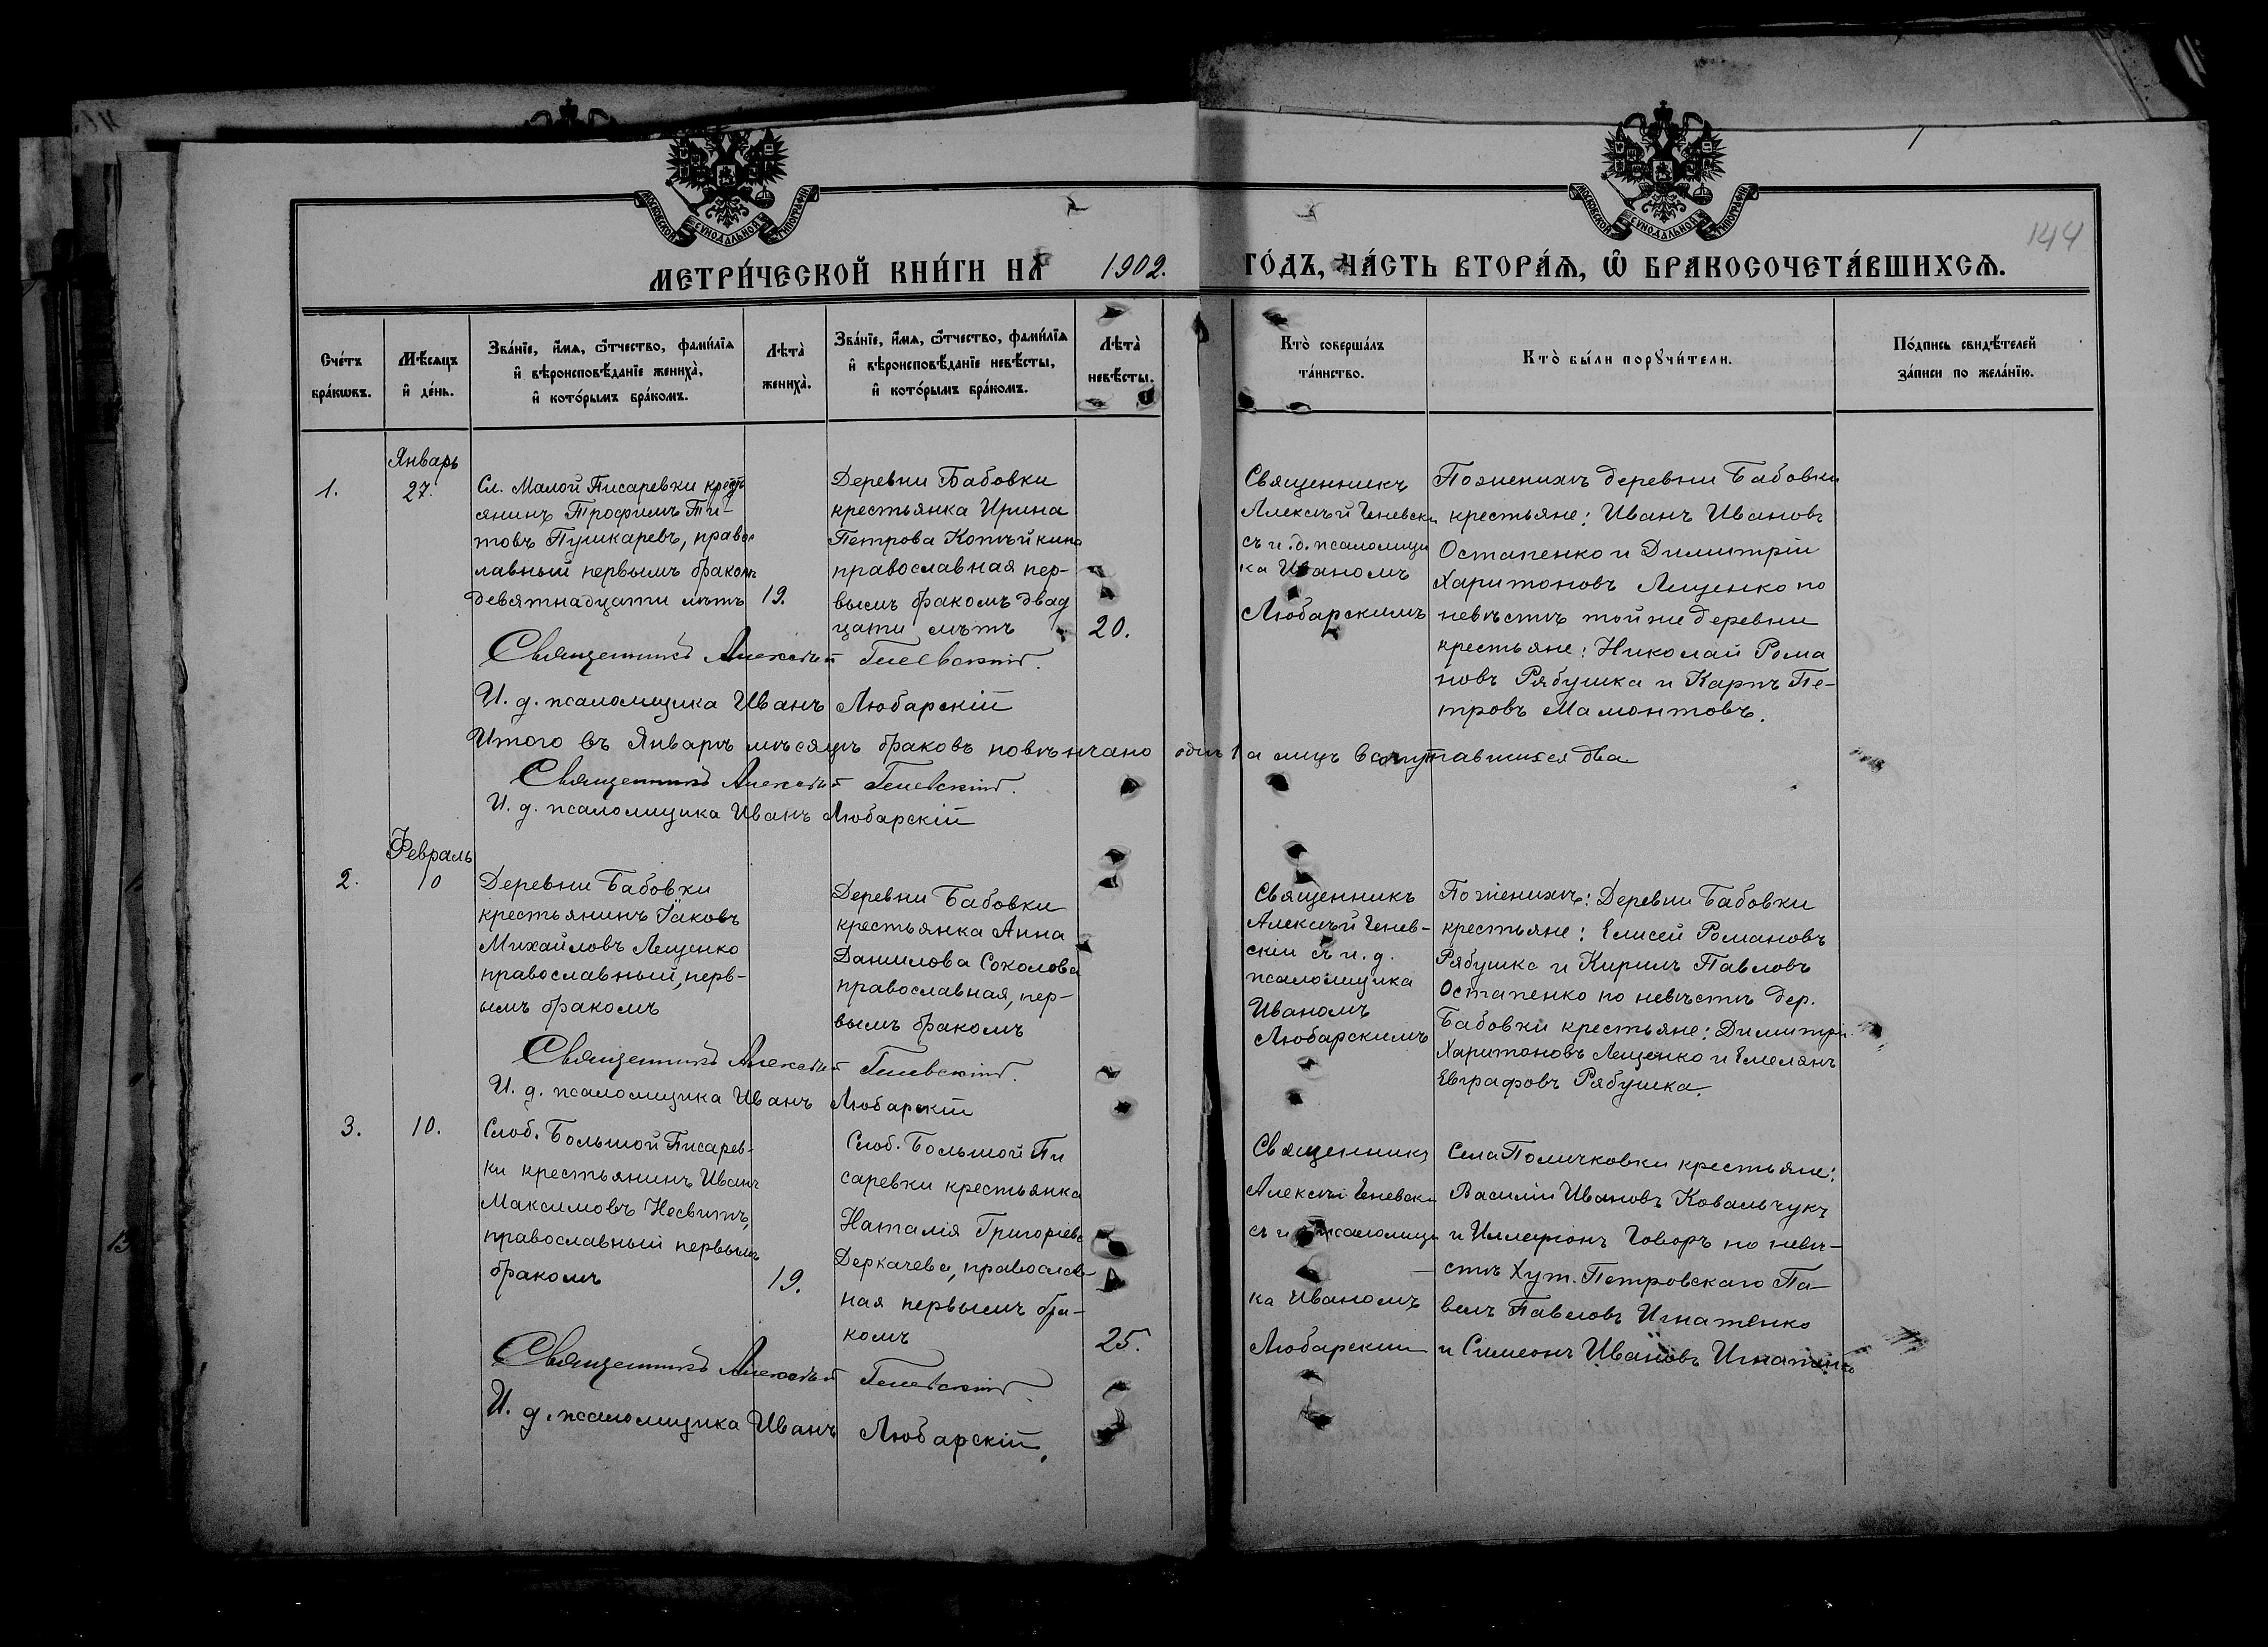 МОСКОВСКОЙ СУНОДАЛЬНОЙ ТИПОГРАФІИ
МОСКОВСКОЙ СУНОДАЛЬНОЙ ТИПОГРАФІИ
144
МЕТРИ́ЧЕСКОЙ КНИ́ГИ НА 1902. ГО́ДЪ, ЧА́СТЬ ВТОРА́Ѧ, Ѽ БРАКОСОЧЕТА́ВШИХСѦ.
Сче́тъ
бра́кѡвъ.
Мѣ́сѧцъ
и҆ де́нь.
Зва́нїе, и҆́мѧ, ѻ҆́тчество, фами́лїѧ
и҆ вѣроисповѣ́данїе жениха̀,
и҆ кото́рымъ бра́комъ.
Лѣта̀
жениха̀.
Зва́нїе, и҆́мѧ, ѻ҆́тчество, фами́лїѧ
и҆ вѣроисповѣ́данїе невѣ́сты,
и҆ кото́рымъ бра́комъ.
Лѣта̀
невѣ́сты.
Кто̀ соверша́лъ
та́инство.
Кто̀ бы́ли порꙋчи́тели.
По́дпись свидѣ́телей
за́писи по жела́нїю.
1.
Январь
27.
Сл. Малой Писаревки кресть
янинъ Трофимъ Ти-
товъ Пушкаревъ, правос
лавный первымъ бракомъ
девятнадцати лѣтъ
19.
Деревни Бабовки
крестьянка Ирина
Петрова Котѣйкина
православная пер-
вымъ бракомъ двад
цати лѣтъ
20.
Священникъ
Алексѣй Геневски
съ и.д. псаломщи
ка Иваномъ
Любарскимъ
По женихѣ деревни Бабовки
крестьяне: Иванъ Ивановъ
Остапенко и Димитрій
Харитоновъ Лещенко по
невѣстѣ той же деревни
крестьяне: Николай Рома
новъ Рябушка и Карпъ Пе-
тровъ Мамонтовъ.
Священникъ Алексѣй Геневскій.
И. д. псаломщика Иванъ Любарскій
Итого въ Январѣ мѣсяцѣ браковъ повѣнчано одинъ 1 а лицъ два
Священникъ Алексѣй Геневскій.
И. д. псаломщика Иванъ Любарскій
2.
Февраль
10
Деревни Бабовки
крестьянинъ Іаковъ
Михайловъ Лещенко
православный, перв-
ымъ бракомъ
Деревни Бабовки
крестьянка Анна
Данилова Соколова
православная, пер-
вымъ бракомъ
Священникъ
Алексѣй Генев-
скій съ и. д.
псаломщика
Иваномъ
Любарскимъ
По женихѣ: Деревни Бабовки
крестьяне: Елисей Романовъ
Рябушка и Кирилъ Павловъ
Остапенко по невѣстѣ дер.
Бабовки крестьяне: Димитрій
Харитоновъ Лещенко и Емелянъ
Евграфовъ Рябушка.
Священникъ Алексѣй Геневскій.
И. д. псаломщика Иванъ Любарскій
3.
10.
Слоб. Большой Писарев-
ки крестьянинъ Иванъ
Максимовъ Несвитъ,
православный первымъ
бракомъ
19.
Слоб. Большой Пи
саревки крестьянка
Наталія Григоріева
Деркачева, православ-
ная первымъ бра-
комъ
25.
Священникъ
Алексѣй Геневски
съ и псаломщи
ка Иваномъ
Любарским
Села Поличковки крестьяне:
Василій Ивановъ Ковальчукъ
и Говоръ по невѣ-
стѣ Хут. Петровскаго Па-
велъ Павловъ Игнатенко
и Симеонъ Ивановъ Игнатенко
Священникъ Алексѣй Геневскій
И. д. псаломщика Иванъ Любарскій.